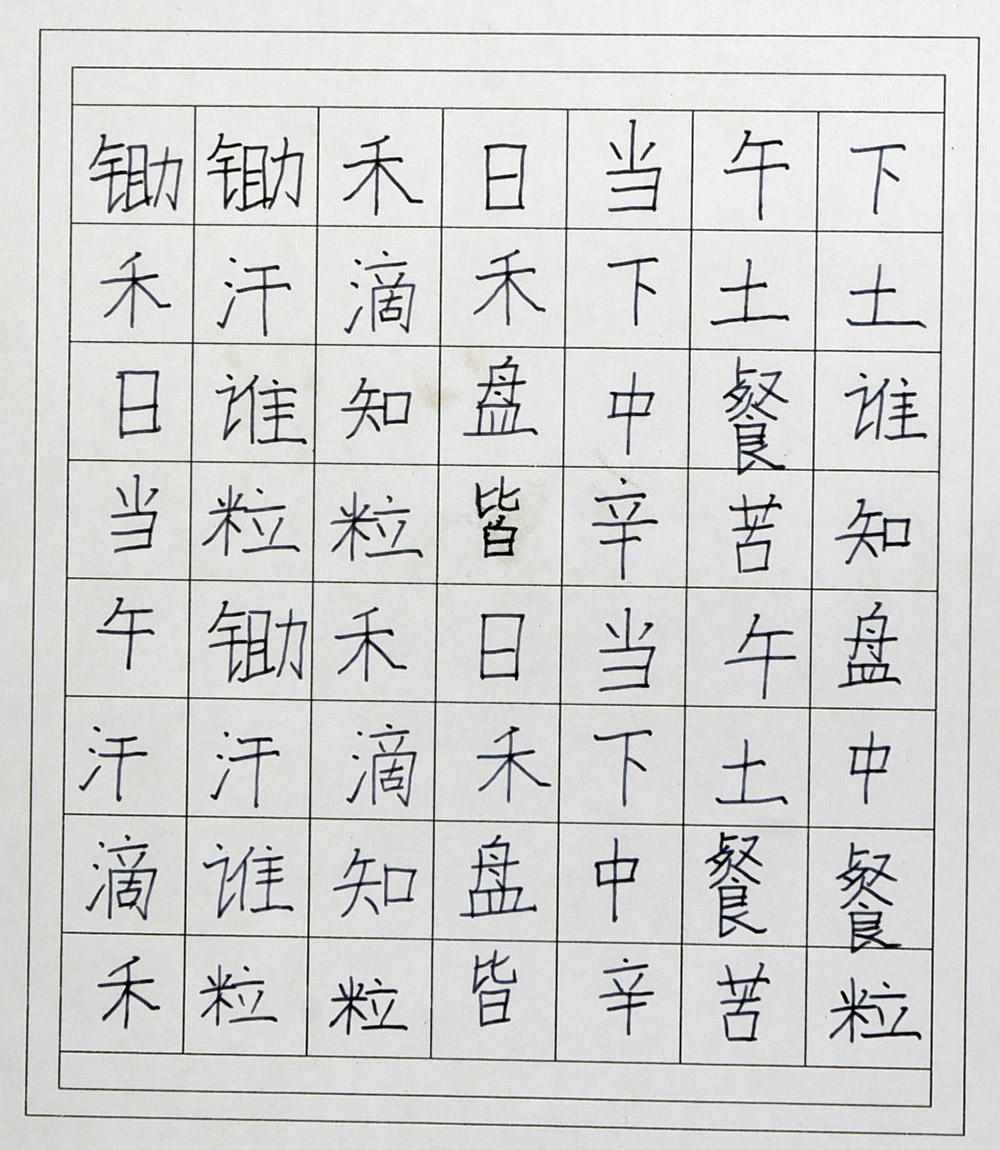 锄锄禾日当午下
禾汗滴禾下土土
日谁知盘中餐谁
当粒粒皆辛苦知
午锄禾日当午盘
汗汗滴禾下土中
滴谁知盘中餐餐
禾粒粒皆辛苦粒